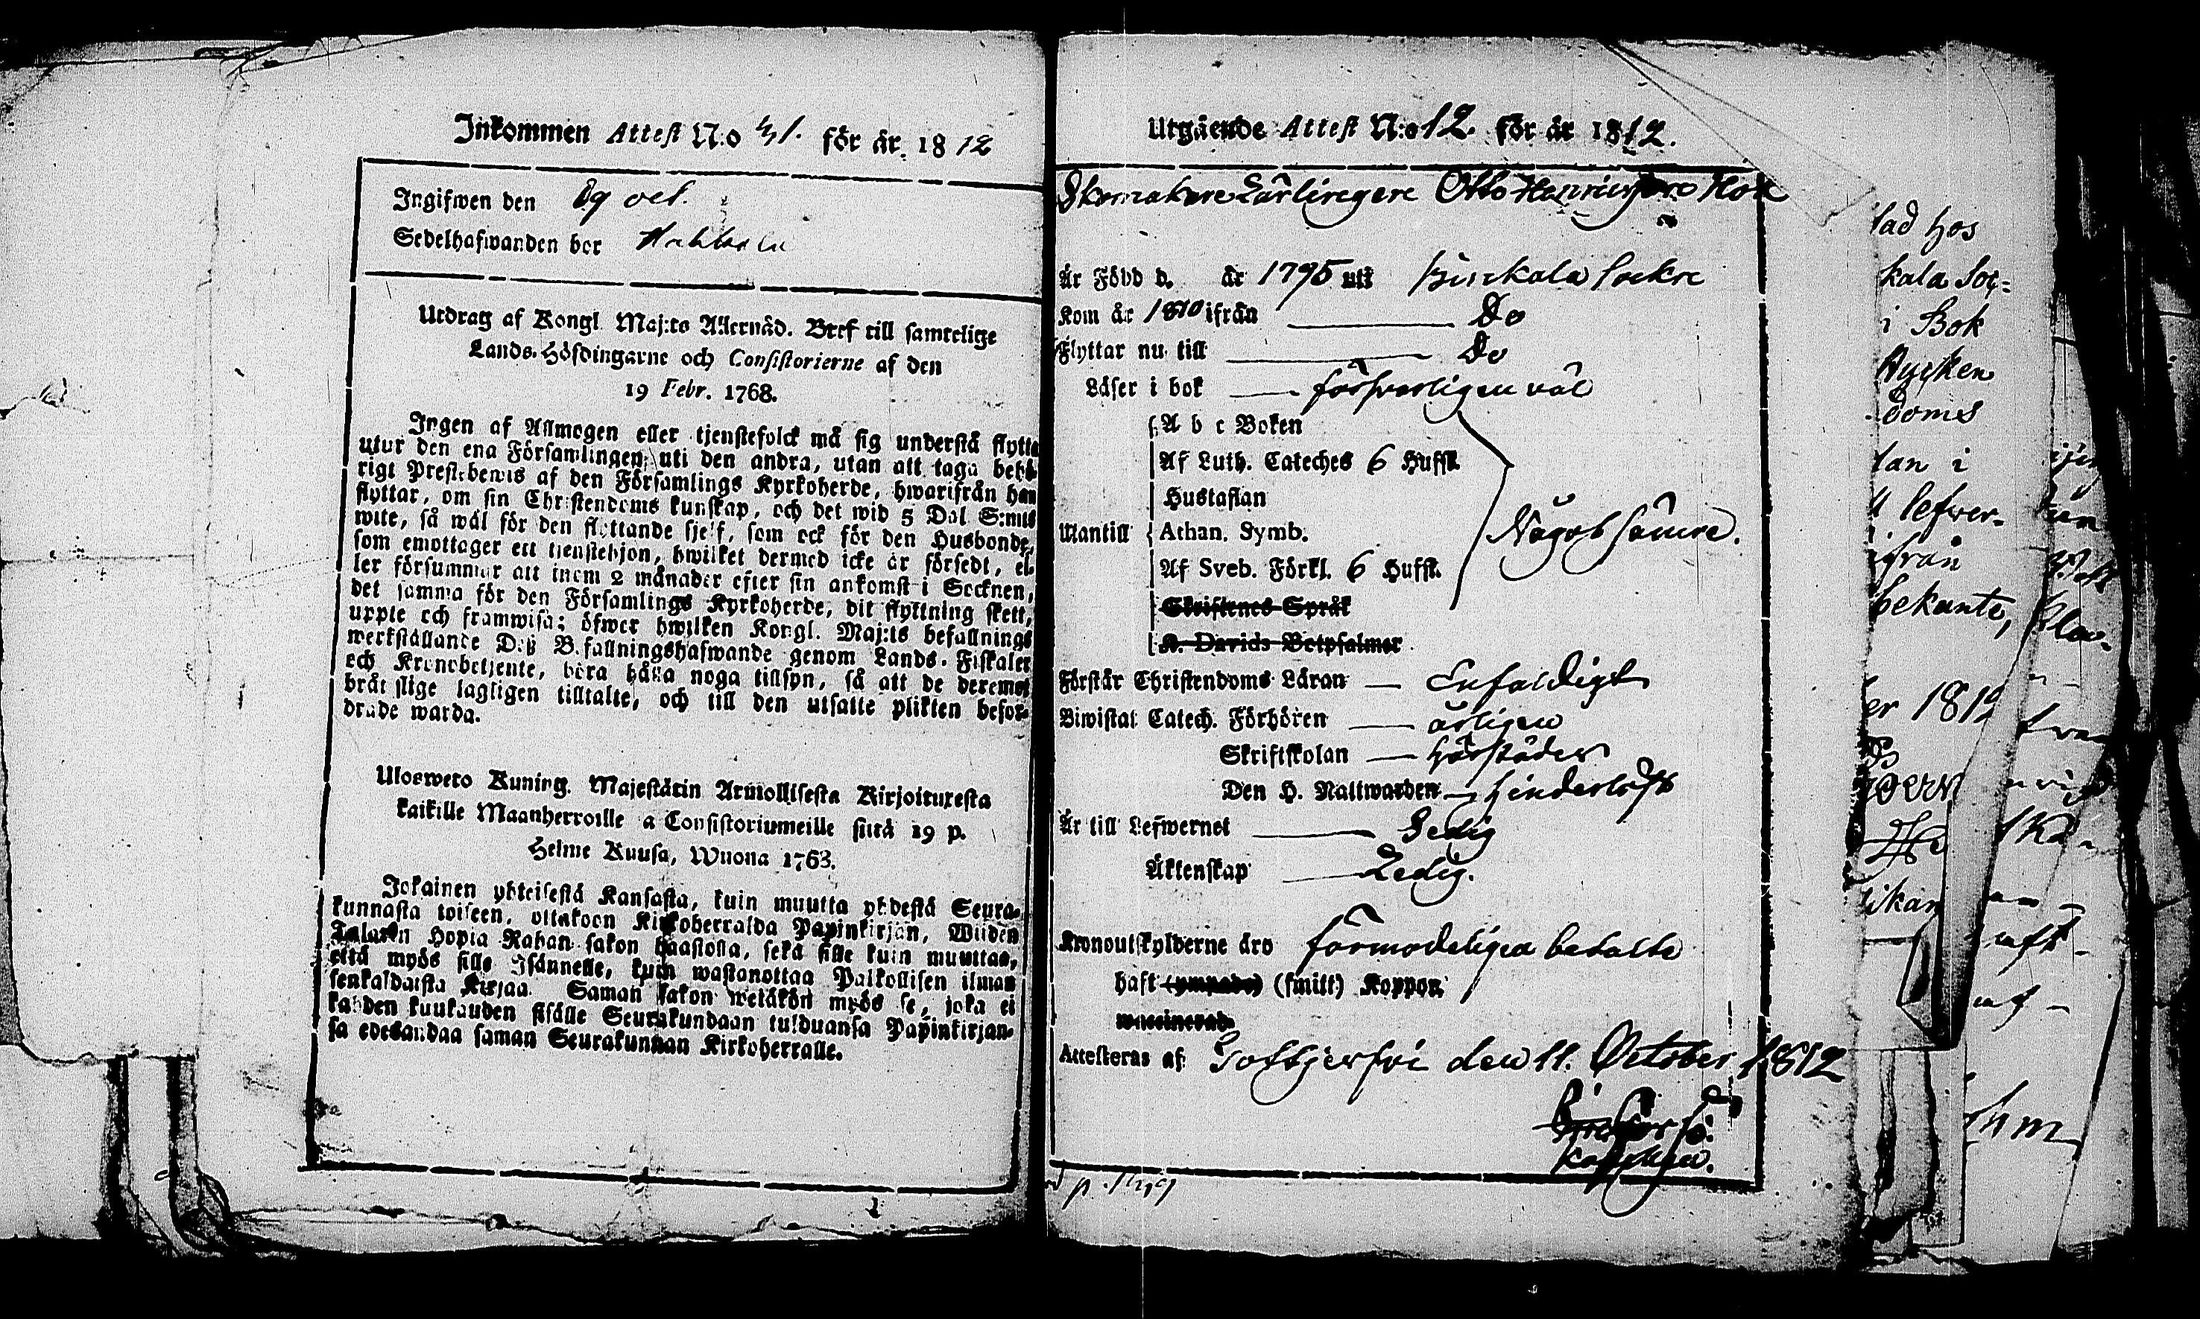 Inkommen Attest N:o 41. för år 1812
Ingifwen den 29 oct.
Sedelhafwanden bor
Utdrag af Kongl. Maj:ts Allernåd. Bref till samtelige
Lands-Höfdingarne och Consistorierne af den
19 Febr. 1768.
Ingen af Allmogen eller tjenstefolck må sig understå flytta
utur den ena Församlingen uti den andra, utan att taga behö-
rigt Prestebewis af den Församlings Kyrkoherde, hwarifrån han
flyttar, om sin Christendoms kunskap, och det wid 5 Dal. S:mts
wite, så wäl för den flyttande sjelf, som ock för den Husbonde,
som emottager ett tienstehjon, hwilket dermed icke är försedt, el-
ler försummar att inom 2 månader efter sin ankomst i Socknen,
det samma för den Församlings Kyrkoherde, dit flyttning skett,
uppte och framwisa; öfwer hwilken Kongl. Maj:ts befallnings
werkställande Deß Befallningshafwande genom Lands-Fiskaler
och Kronobetjente, böra hålla noga tillsyn, så att de deremot
bråt slige lagligen tilltalte, och till den utsatte plikten befor-
drade warda.
Ulosweto Kuning. Majestätin Armollisesta Kirjoituxesta
kaikille Maanherroille ja Consistoriumeille siitä 19 p.
Helme Kuusa, Wuona 1763.
Jokainen yhteisestä Kansasta, kuin muutta yhdestä Seura-
kunnasta toiseen, ottakoon Kirkoherralda Papinkirjan, Wiiden
Talarin Hopia Rahan sakon haastolla, sekä sille kuin muuttaa,
että myös sille Isännelle, kuin wastanottaa Palkollisen ilman
senkaldaista Kirjaa. Saman sakon wetäkön myös se, joka ei
kahden kuukauden sisälle Seurakundaan tulduansa Papinkirjan-
sa edesandaa saman Seurakunnan Kirkoherralle.
Utgående Attest N:o 12. för år 1812.
Skomakare Lärlingen Otto Henricsson Hok
Är Född d. år 1795 uti Pirkala Sockn
Kom år 1810 ifrån Do
Flyttar nu till Do
Läser i bok försvarligen väl
A b c Boken
Af Luth. Cateches 6 Hufst.
Hustaflan
Wantill Athan. Symb. Något sämre.
Af Sveb. Förkl. 6 Hufst.
Skriftenes Språk
K. Davids Botpsalmer
Förstår Christendoms Läran Enfaldigt
Biwistat Catech. Förhören årligen
Skriftskolan härstädes
Den H. Nattwarden hinderlöst
Är till Lefwernet Sedig
Äktenskap Ledig.
Kronoutskylderne äro förmodeligen betalte
haft (ympade) (smitt) Koppor,
waccinerad
Attesteras af den 11. October 1812